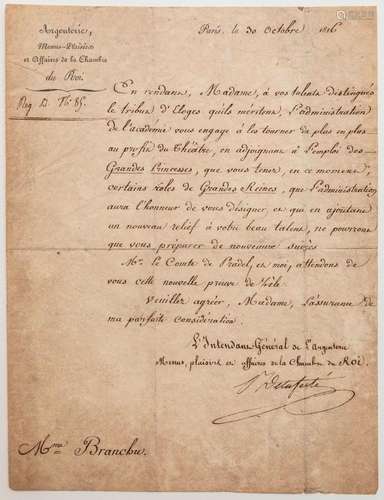 Argenterie,
Menus-Plaisirs
et Affaires de la Chambre
du Roi
Reg. D. No. 85.
Paris, le 30 Octobre 1816
En rendant, Madame, à vos talents distingués
le tribut d'Eloges qu'ils méritent, l'administration
de l'académie vous engage à les tourner de plus en plus
au profit du Théâtre, en adjoignant à l'emploi des
Grandes Princesses, que vous tenez, en ce moment,
certains rôles de Grandes Reines, que l'administration
aura l'honneur de vous désigner, et qui en ajoutant
un nouveau relief à votre beau talent, ne pourront
que vous préparer de nouveaux succès
Mr. le Comte de Pradel, et moi, attendons de
vous cette nouvelle preuve de zèle.
Veuillez agréer, Madame, l'assurance de
ma parfaite considération.
L'Intendant Général de l'Argenterie
Menus, plaisirs et affaires de la Chambre du Roi.
Delaferté
Mme Branchu.